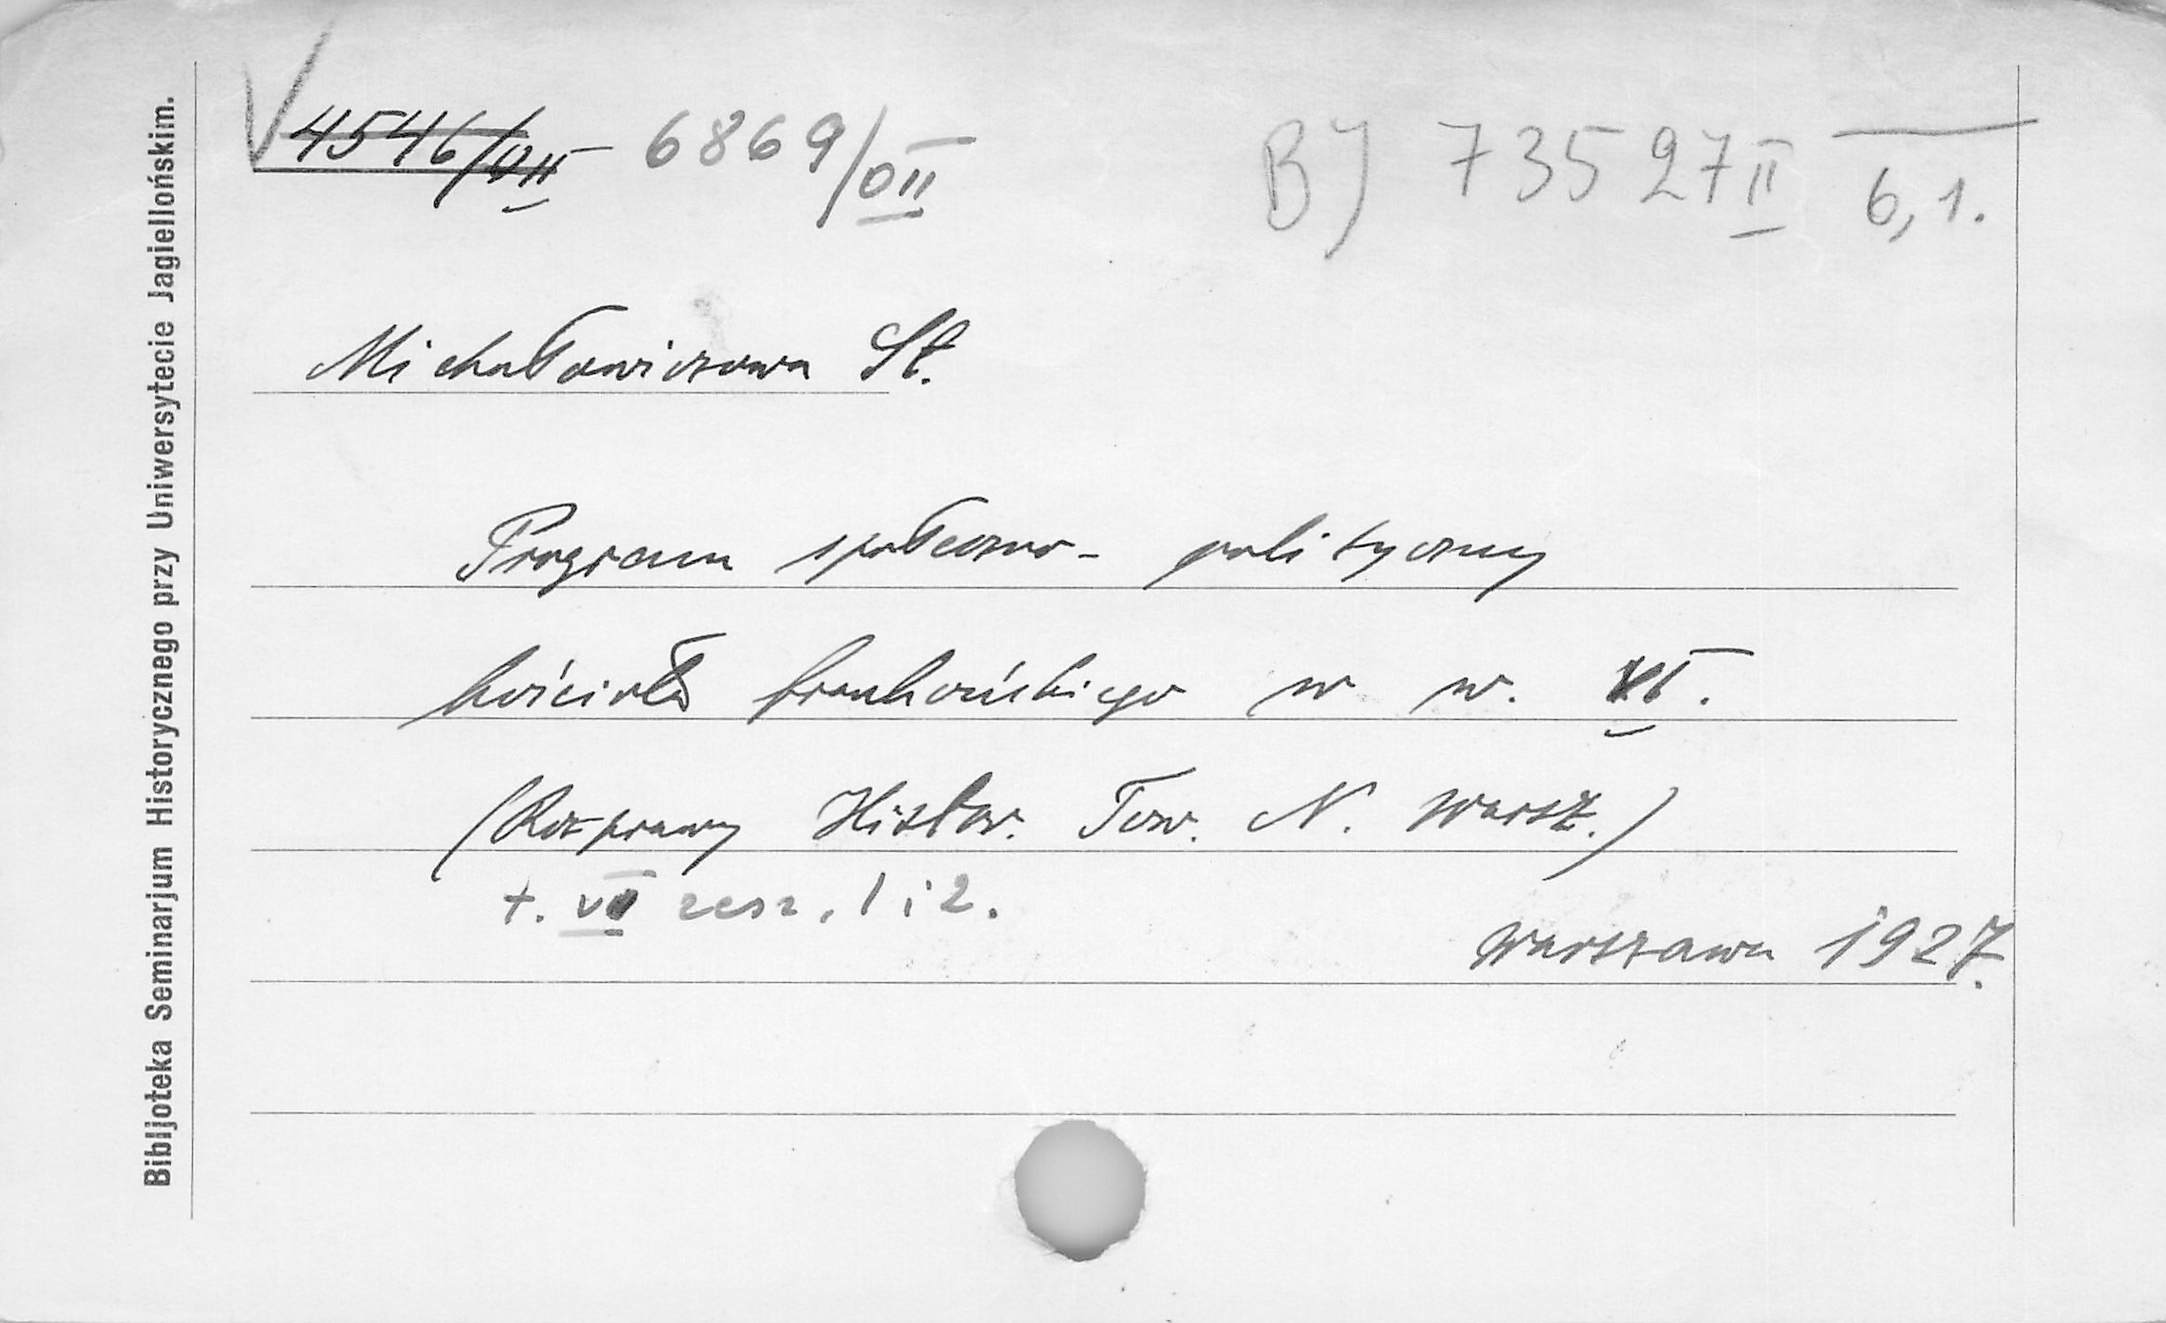 Bibljoteka Seminarjum Historycznego przy Uniwersytecie Jagiellońskim.
4546/DII 6869/DII BJ 73527 II 6,1.
Michałowiczowa St.
Program społeczno- polityczny
kościoła frankońskiego w w. VI.
(Rozprawy Histor. Tow. N. Warsz.)
t. VI zesz. 1 i 2.
Warszawa 1927.